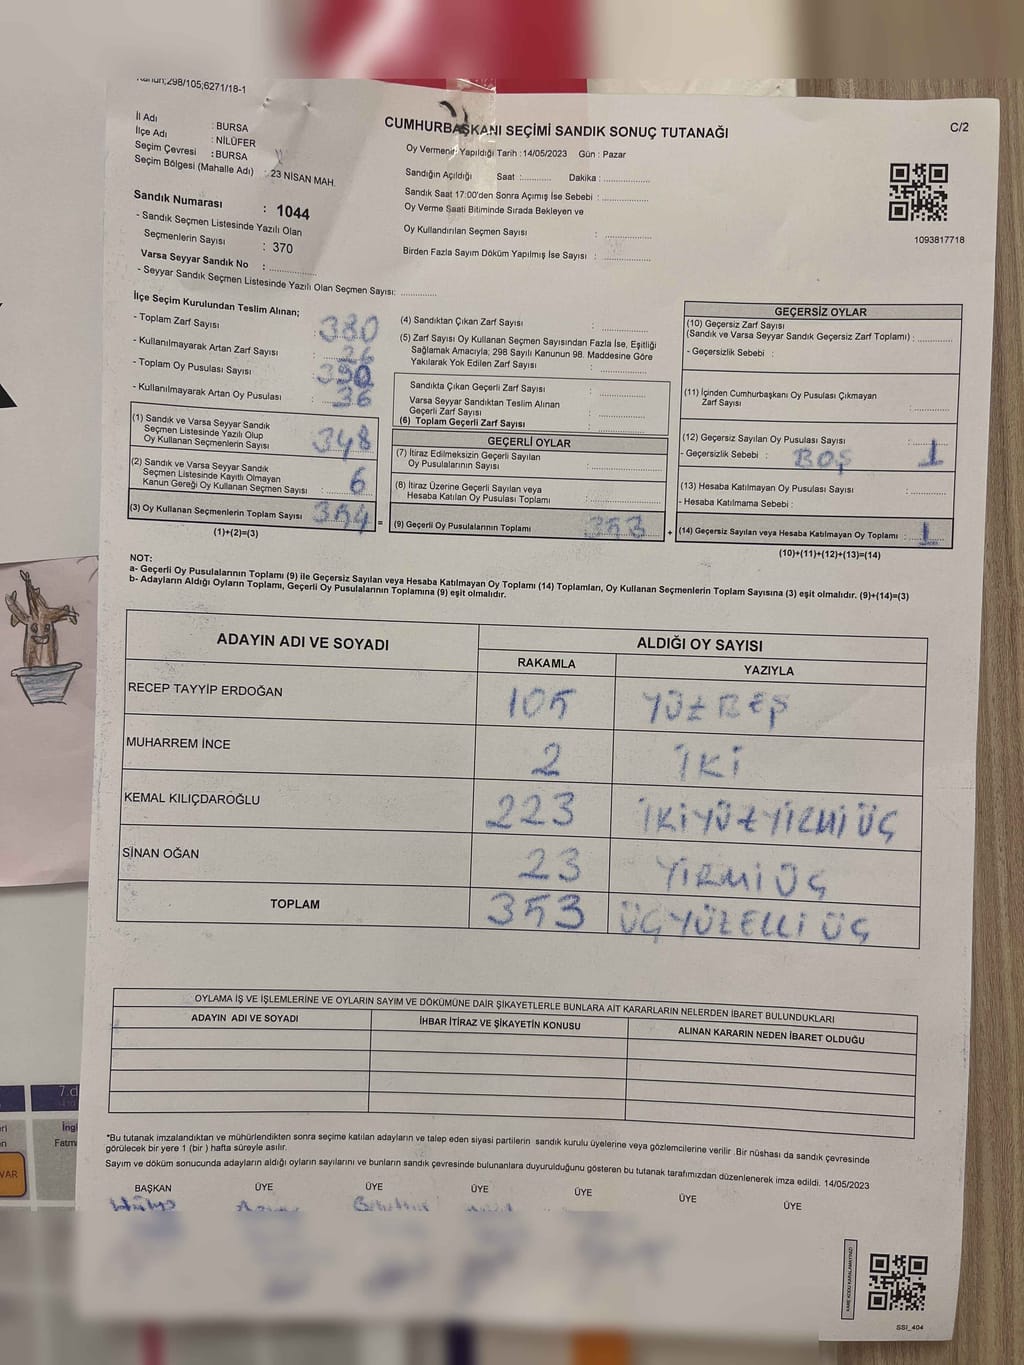 Kanun;298/105;6271/18-1
C/2
CUMHURBAŞKANI SEÇİMİ SANDIK SONUÇ TUTANAĞI
İl Adı : BURSA
İlçe Adı : NİLÜFER
Seçim Çevresi : BURSA
Seçim Bölgesi (Mahalle Adı) : 23 NİSAN MAH.
Sandık Numarası : 1044
- Sandık Seçmen Listesinde Yazılı Olan
Seçmenlerin Sayısı : 370
Varsa Seyyar Sandık No :
- Seyyar Sandık Seçmen Listesinde Yazılı Olan Seçmen Sayısı:
Oy Vermenin Yapıldığı Tarih : 14/05/2023 Gün : Pazar
Sandığın Açıldığı Saat : Dakika :
Sandık Saat 17:00'den Sonra Açımış İse Sebebi :
Oy Verme Saati Bitiminde Sırada Bekleyen ve
Oy Kullandırılan Seçmen Sayısı :
Birden Fazla Sayım Döküm Yapılmış İse Sayısı :
1093817718
İlçe Seçim Kurulundan Teslim Alınan;
- Toplam Zarf Sayısı : 380
- Kullanılmayarak Artan Zarf Sayısı : 26
- Toplam Oy Pusulası Sayısı : 390
- Kullanılmayarak Artan Oy Pusulası : 36
(1) Sandık ve Varsa Seyyar Sandık
Seçmen Listesinde Yazılı Olup
Oy Kullanan Seçmenlerin Sayısı : 348
(2) Sandık ve Varsa Seyyar Sandık
Seçmen Listesinde Kayıtlı Olmayan
Kanun Gereği Oy Kullanan Seçmen Sayısı : 6
(3) Oy Kullanan Seçmenlerin Toplam Sayısı : 354 =
(1)+(2)=(3)
(4) Sandıktan Çıkan Zarf Sayısı :
(5) Zarf Sayısı Oy Kullanan Seçmen Sayısından Fazla İse, Eşitliği
Sağlamak Amacıyla; 298 Sayılı Kanunun 98. Maddesine Göre
Yakılarak Yok Edilen Zarf Sayısı :
Sandıkta Çıkan Geçerli Zarf Sayısı :
Varsa Seyyar Sandıktan Teslim Alınan
Geçerli Zarf Sayısı :
(6) Toplam Geçerli Zarf Sayısı :
GEÇERLİ OYLAR
(7) İtiraz Edilmeksizin Geçerli Sayılan
Oy Pusulalarının Sayısı :
(8) İtiraz Üzerine Geçerli Sayılan veya
Hesaba Katılan Oy Pusulası Toplamı :
(9) Geçerli Oy Pusulalarının Toplamı : 353 +
GEÇERSİZ OYLAR
(10) Geçersiz Zarf Sayısı
(Sandık ve Varsa Seyyar Sandık Geçersiz Zarf Toplamı) :
- Geçersizlik Sebebi :
(11) İçinden Cumhurbaşkanı Oy Pusulası Çıkmayan
Zarf Sayısı :
(12) Geçersiz Sayılan Oy Pusulası Sayısı : 1
- Geçersizlik Sebebi : BOŞ
(13) Hesaba Katılmayan Oy Pusulası Sayısı :
- Hesaba Katılmama Sebebi :
(14) Geçersiz Sayılan veya Hesaba Katılmayan Oy Toplamı : 1
(10)+(11)+(12)+(13)=(14)
NOT:
a- Geçerli Oy Pusulalarının Toplamı (9) ile Geçersiz Sayılan veya Hesaba Katılmayan Oy Toplamı (14) Toplamları, Oy Kullanan Seçmenlerin Toplam Sayısına (3) eşit olmalıdır. (9)+(14)=(3)
b- Adayların Aldığı Oyların Toplamı, Geçerli Oy Pusulalarının Toplamına (9) eşit olmalıdır.
ADAYIN ADI VE SOYADI ALDIĞI OY SAYISI
RAKAMLA YAZIYLA
RECEP TAYYİP ERDOĞAN 105 YÜZBEŞ
MUHARREM İNCE 2 İKİ
KEMAL KILIÇDAROĞLU 223 İKİYÜZYİRMİ ÜÇ
SİNAN OĞAN 23 YİRMİ ÜÇ
TOPLAM 353 ÜÇYÜZELLİ ÜÇ
OYLAMA İŞ VE İŞLEMLERİNE VE OYLARIN SAYIM VE DÖKÜMÜNE DAİR ŞİKAYETLERLE BUNLARA AİT KARARLARIN NELERDEN İBARET BULUNDUKLARI
ADAYIN ADI VE SOYADI İHBAR İTİRAZ VE ŞİKAYETİN KONUSU ALINAN KARARIN NEDEN İBARET OLDUĞU
*Bu tutanak imzalandıktan ve mühürlendikten sonra seçime katılan adayların ve talep eden siyasi partilerin sandık kurulu üyelerine veya gözlemcilerine verilir .Bir nüshası da sandık çevresinde
görülecek bir yere 1 (bir ) hafta süreyle asılır.
Sayım ve döküm sonucunda adayların aldığı oyların sayılarını ve bunların sandık çevresinde bulunanlara duyurulduğunu gösteren bu tutanak tarafımızdan düzenlenerek imza edildi. 14/05/2023
BAŞKAN ÜYE ÜYE ÜYE ÜYE ÜYE ÜYE
KARE KODU KARALAMAYINIZ!
SSI_404
7.d
İngi
Fatm
VAR